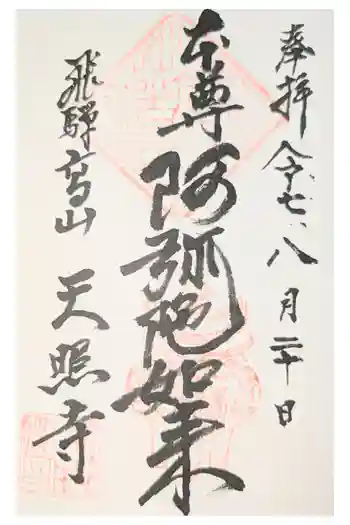 奉拝 令七、八月二十日
本尊 阿弥陀如来
飛騨高山 天照寺